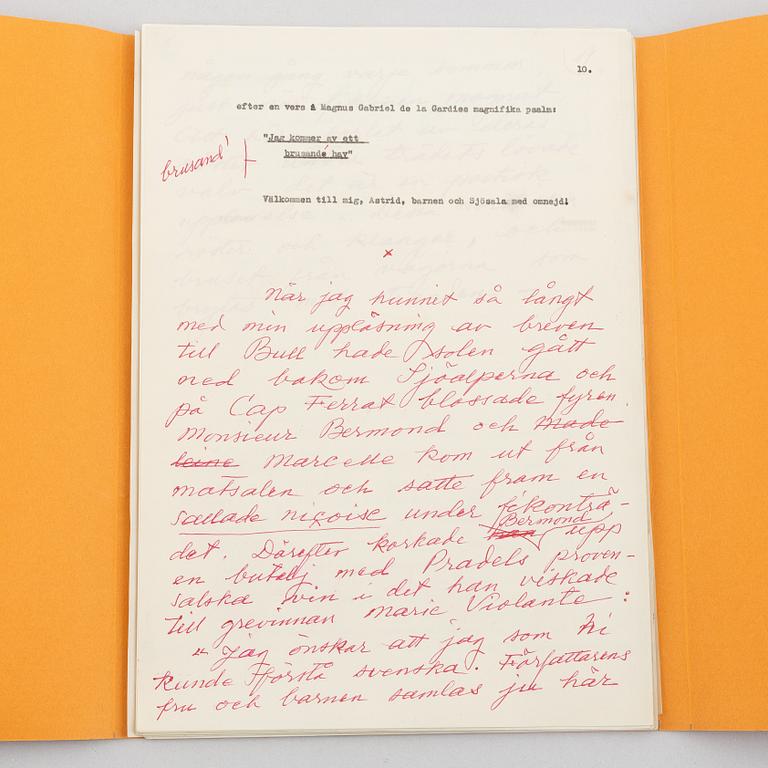 10.
efter en vers å Magnus Gabriel de la Gardies magnifika psalm:
"Jag kommer av ett
brusande hav"
brusand'
Välkommen till mig, Astrid, barnen och Sjösala med omnejd!
x
När jag hunnit så långt
med min uppläsning av breven
till Bull hade solen gått
ned bakom Sjöalperna och
på Cap Ferrat blossade fyren.
Monsieur Bermond och Made
leine Marcelle kom ut från
matsalen och satte fram en
sallade niçoise under fikonträ-
det. Därefter korkade Bermond upp
en butelj med Pradels proven-
salska vin i det han viskade
till grevinnan Marie Violante:
"Jag önskar att jag som Ni
kunde förstå svenska. Författarens
fru och barnen samlas ju här